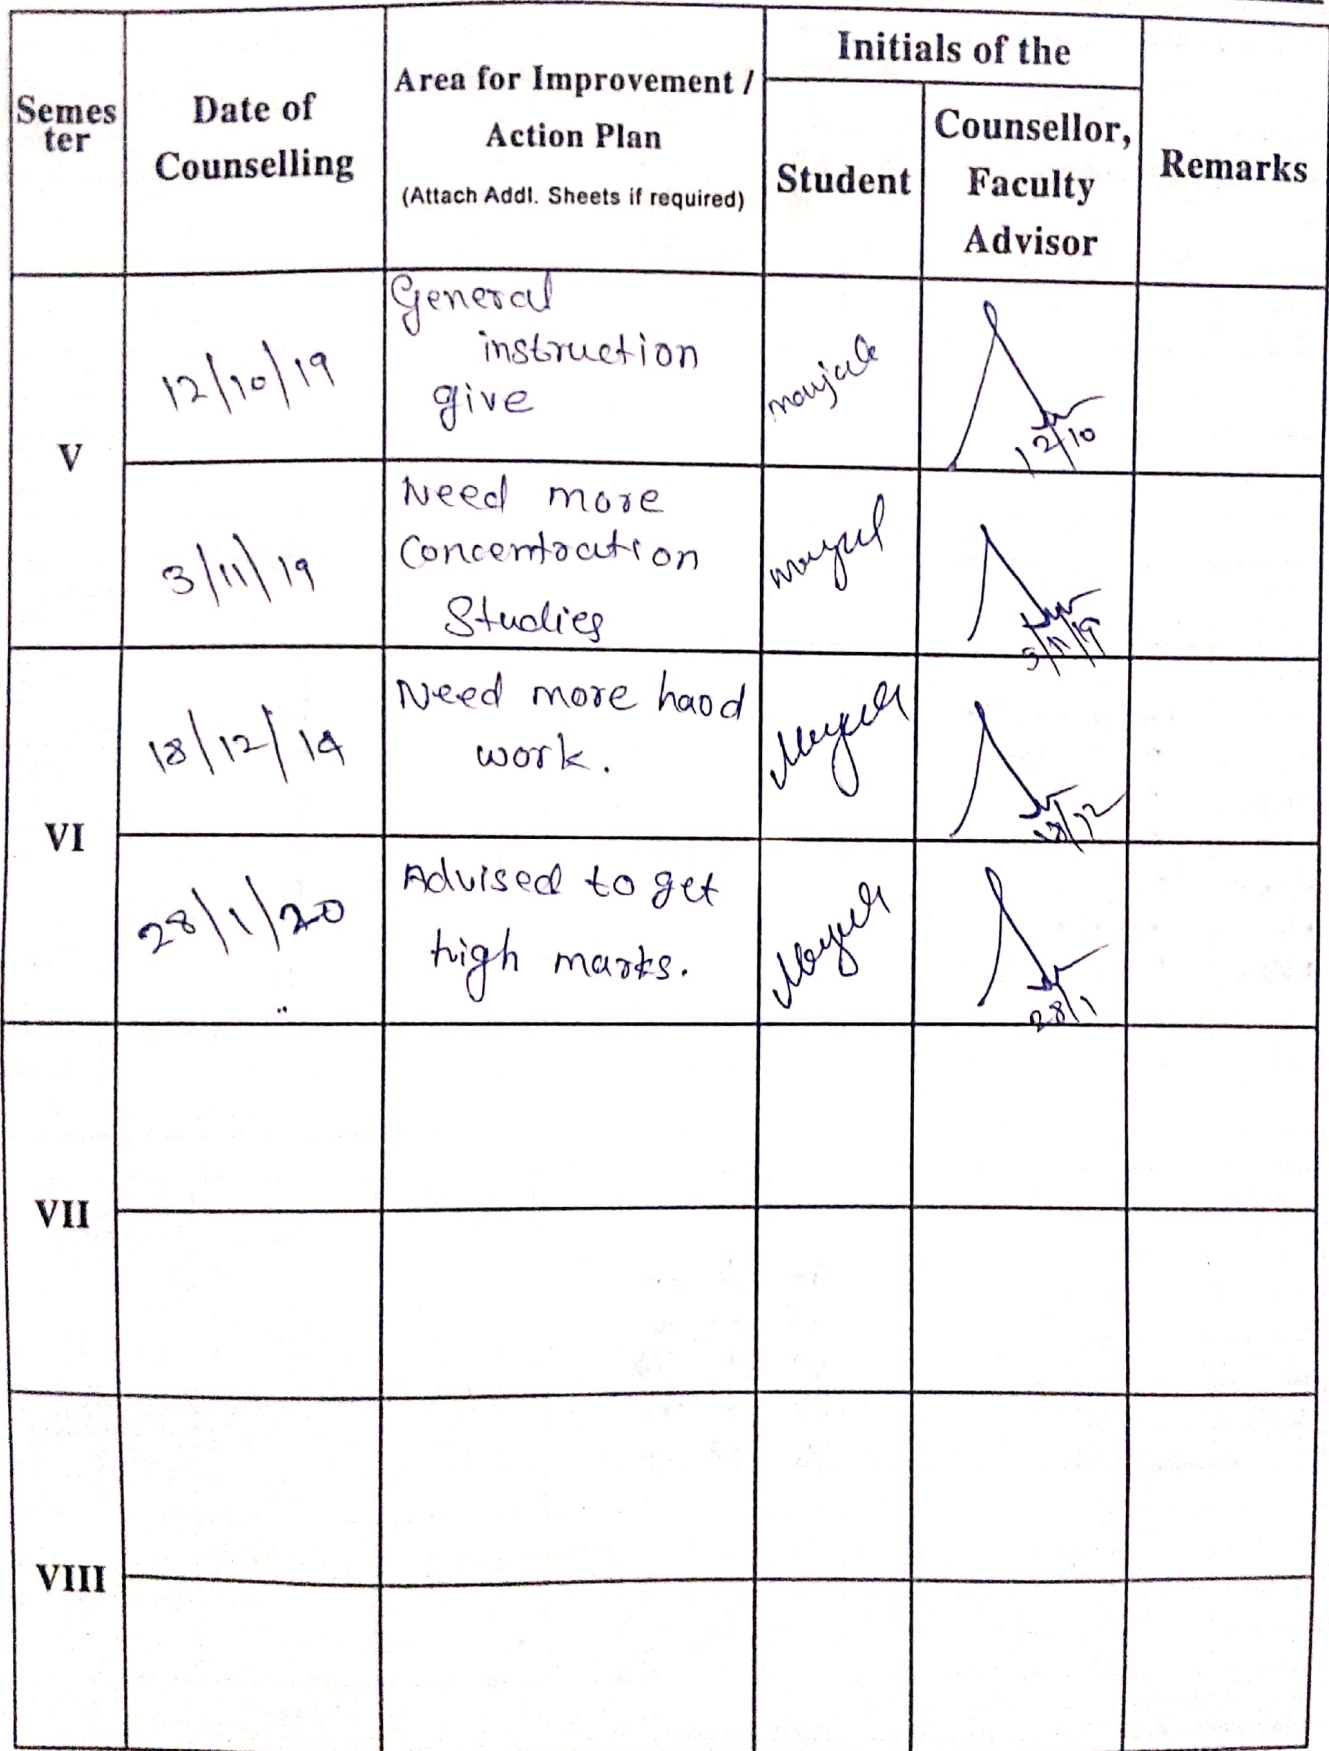 Initials of the
Semes
ter
Date of
Counselling
Area for Improvement /
Action Plan
(Attach Addl. Sheets if required)
Student
Counsellor,
Faculty
Advisor
Remarks
V
12/10/19
General
instruction
give
12/10
3/11/19
Need more
Concentration
Studies
3/11/19
VI
18/12/19
Need more hard
work.
18/12
28/1/20
Advised to get
high marks.
28/1
VII
VIII